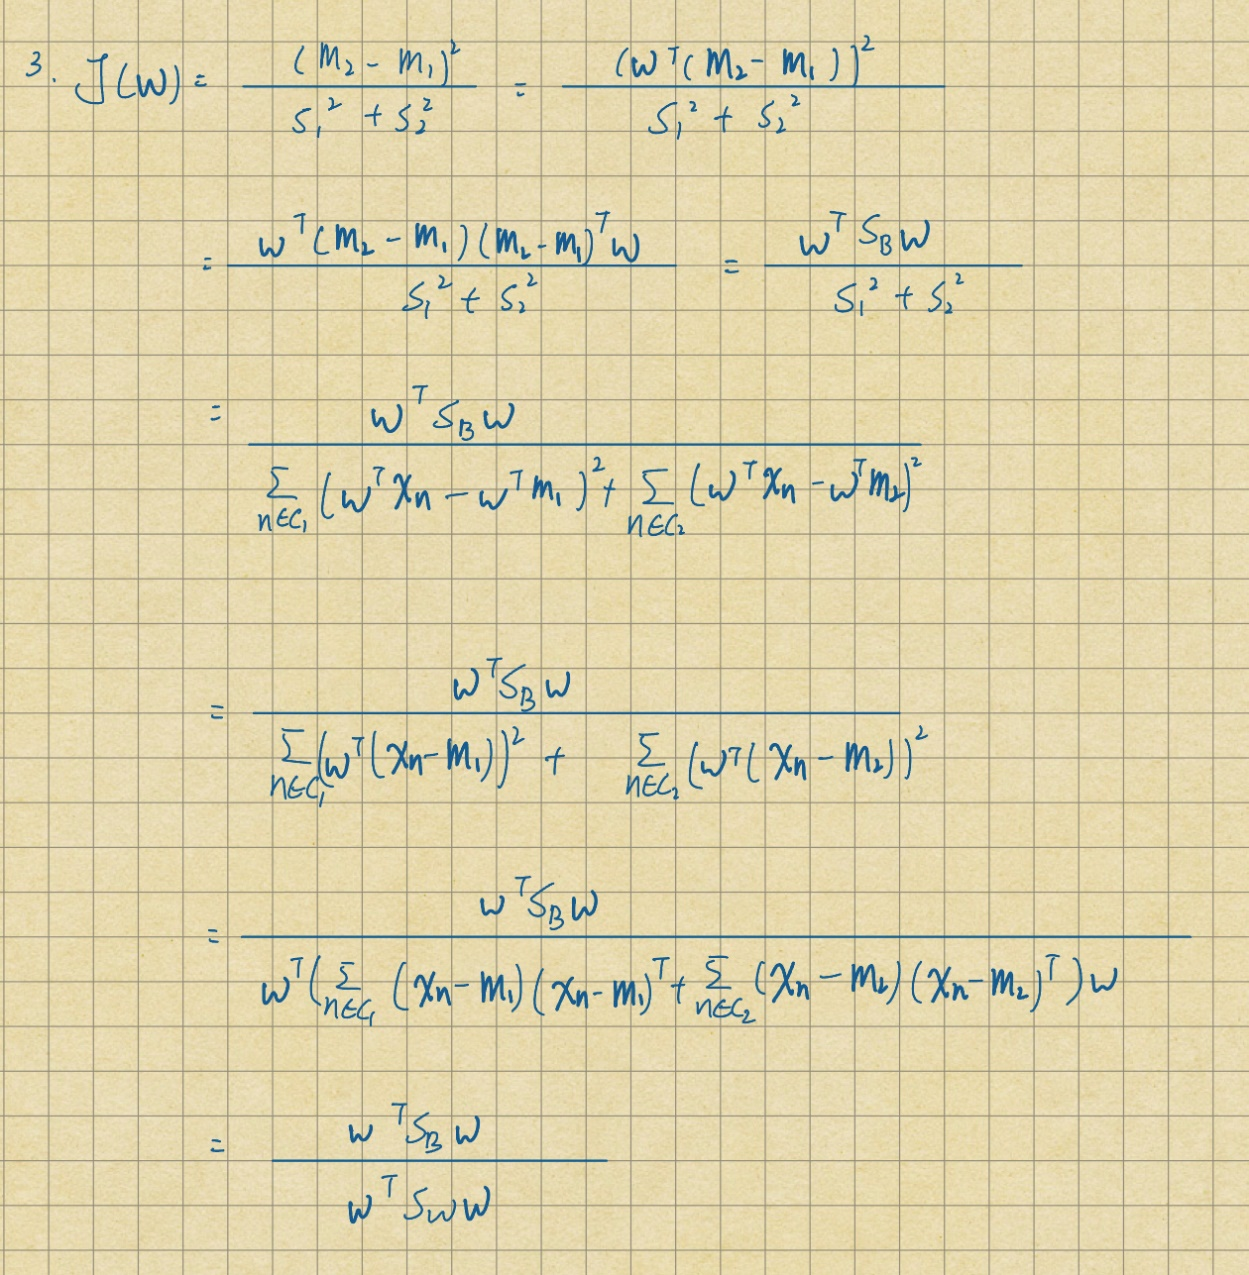 3. J(w) = (m₂ - m₁)² / (s₁² + s₂²) = (wᵀ(m₂ - m₁))² / (s₁² + s₂²)
= wᵀ(m₂ - m₁)(m₂ - m₁)ᵀw / (s₁² + s₂²) = wᵀS_Bw / (s₁² + s₂²)
= wᵀS_Bw / (∑_{n∈C₁} (wᵀxₙ - wᵀm₁)² + ∑_{n∈C₂} (wᵀxₙ - wᵀm₂)²)
= wᵀS_Bw / (∑_{n∈C₁} (wᵀ(xₙ - m₁))² + ∑_{n∈C₂} (wᵀ(xₙ - m₂))²)
= wᵀS_Bw / wᵀ(∑_{n∈C₁} (xₙ - m₁)(xₙ - m₁)ᵀ + ∑_{n∈C₂} (xₙ - m₂)(xₙ - m₂)ᵀ)w
= wᵀS_Bw / wᵀS_ww